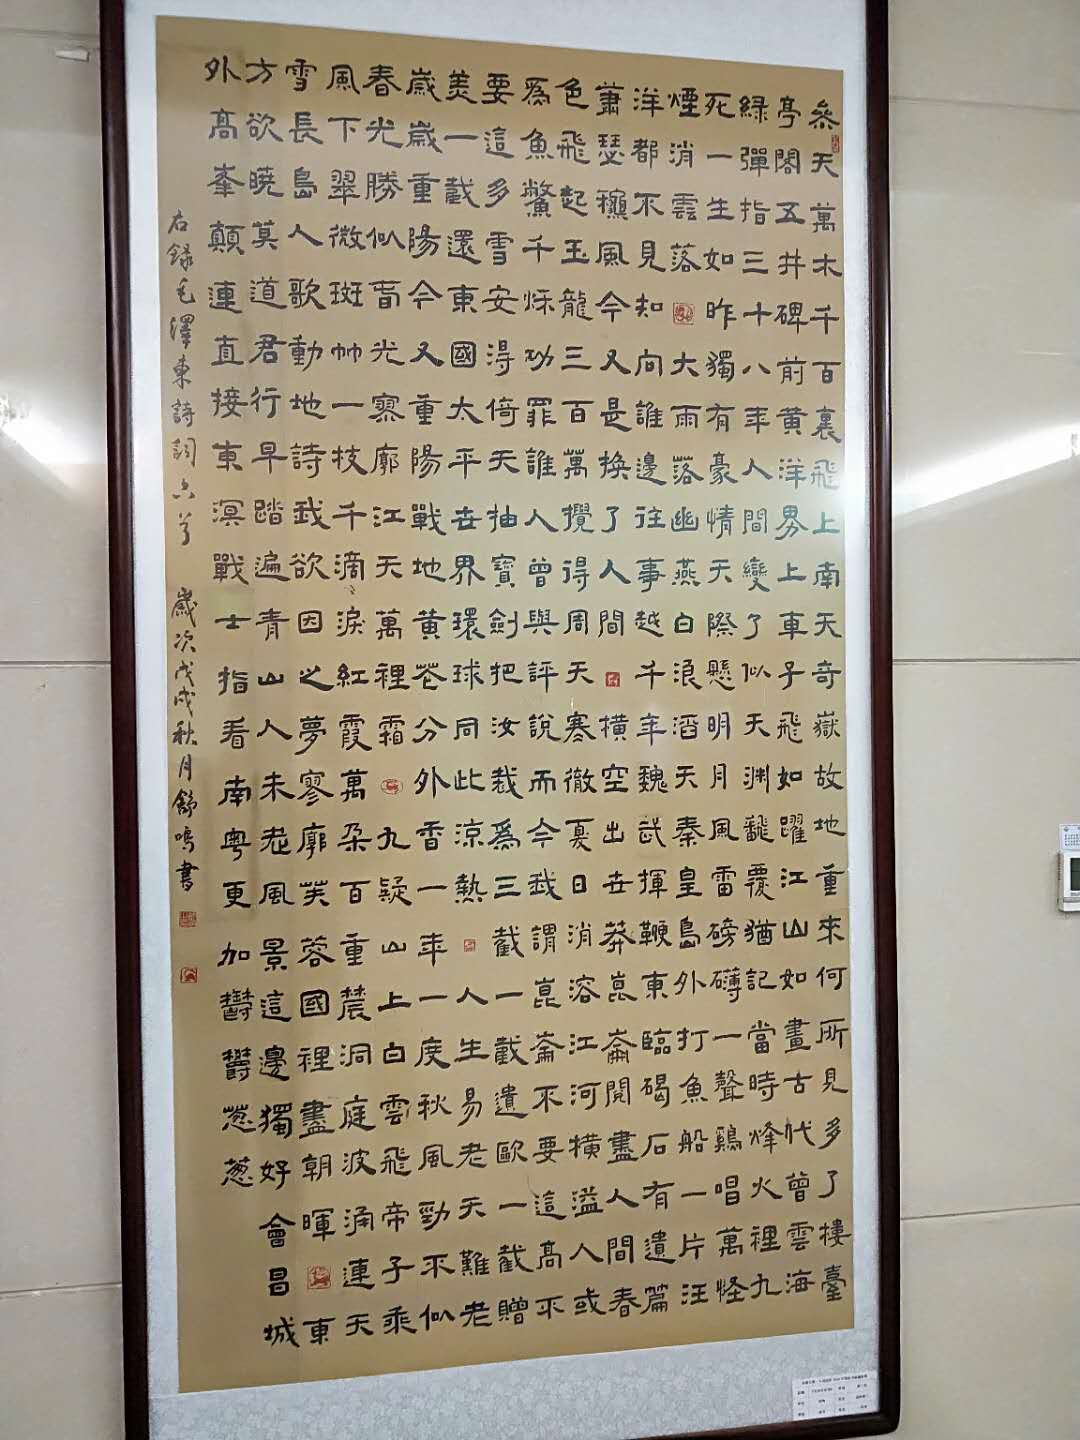 叅天萬木千百裏飛上南天奇嶽故地重來何所見多了樓臺
亭閣五井碑前黃洋界上車子飛如躍江山如畫古代曾雲海
綠彈指三十八年人間變了似天淵飜覆猶記當時烽火裡九
死一生如昨獨有豪情天際懸明月風雷磅礴一聲鷄唱萬怪
煙消雲落大雨落幽燕白浪滔天秦皇島外打魚船一片汪
洋都不見知向誰邊往事越千年魏武揮鞭東臨碣石有遺篇
蕭瑟穐風今又是換了人間橫空出世莽崑崙閱盡人間春
色飛起玉龍三百萬攪得周天寒徹夏日消溶江河橫溢人或
為魚鱉千烁功罪誰人曾與評說而今我謂崑崙不要這高不
要這多雪安得倚天抽寶劍把汝裁為三截一截遺歐一截贈
美一截還東國太平世界環球同此涼熱人生易老天難老
歲歲重陽今又重陽戰地黃花分外香一年一度秋風勁不似
春光勝似旾光寥廓江天萬裡霜九疑山上白雲飛帝子乘
風下翠微斑竹一枝千滴淚紅霞萬朵百重農洞庭波涌連天
雪長島人歌動地詩我欲因之夢寥廓芙蓉國裡盡朝暉東
方欲曉莫道君行早踏遍青山人未老風景這邊獨好會昌城
外高峯顛連直接東溟戰士指看南粵更加鬱鬱葱葱
右錄毛澤東詩詞六首 歲次戊戌秋月舒鳴書